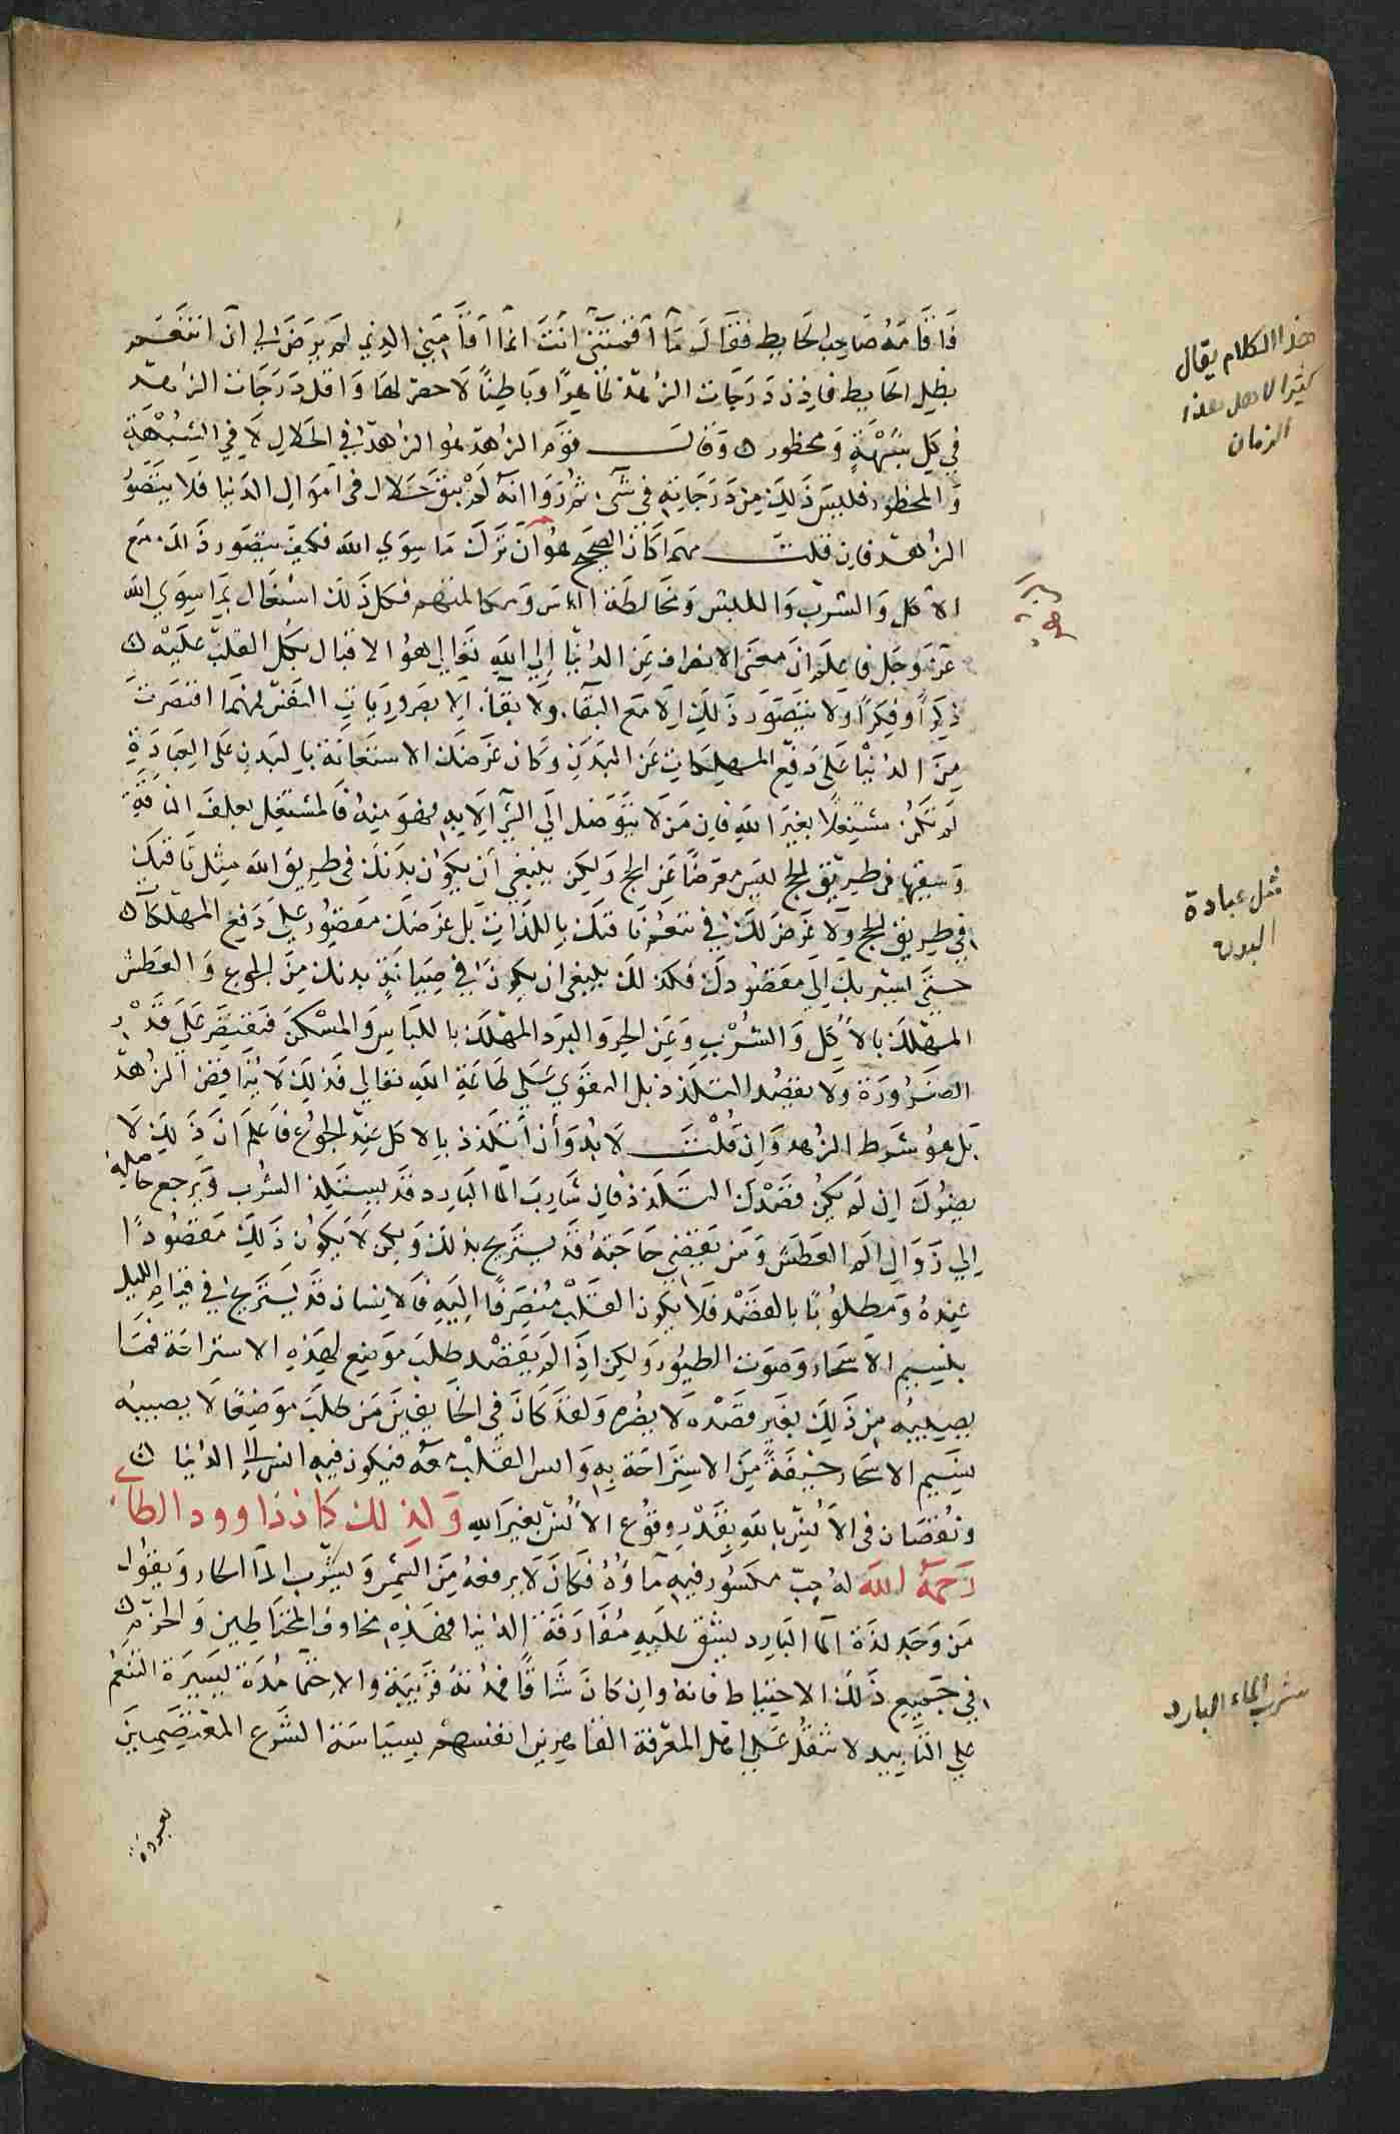 فاقامه صاحب الحايط فقال ما اقمتني انت انما اقامني الذي لم يرض لي ان اتنعم
بظل الحايط فاذن درجات الزهد ظاهرا وباطنا لا حصر لها واقل درجات الزهد
في كل شبهة ومحظور ن وقال قوم الزهد هو الزهد في الحلال لا في الشبهة
والمحظور فليس ذلك من درجاته في شيء ثم روا انه لم يبق حلال في اموال الدنيا فلا يتصور
الزهد فان قلت مهما كان الصحيح هو ان ترك ما سوي الله فكيف يتصور ذلك مع
الاكل والشرب واللبس ومخالطة الناس ومكالمتهم فكل ذلك اشتغال بما سوي الله
عز وجل فاعلم ان معنى الانصراف عن الدنيا الي الله تعالي هو الاقبال بكل القلب عليه ن
ذكرا وفكرا ولا يتصور ذلك الا مع البقا، ولا بقا، الا بضروريات النفس فمهما اقتصرت
من الدنيا على دفع المهلكات عن البدن وكان غرضك الاستعانة بالبدن على العبادة
لم تكن مشتغلا بغير الله فان من لا يتوصل الي الشي الا به فهو منه فالمشتغل بعلف الناقة
وسقيها في طريق الحج ليس معرضا عن الحج ولكن ينبغي ان يكون بدنك في طريق الله مثل ناقتك
في طريق الحج ولا غرض لك في تنعم ناقتك باللذات بل غرضك مقصور على دفع المهلكات ن
حتى تسير بك الي مقصودك فكذلك ينبغي ان يكون في صيانة بدنك من الجوع والعطش
المهلك بالاكل والشرب وعن الحر والبرد المهلك باللباس والمسكن فتقتصر علي قدر
الضرورة ولا يقصد التلذذ بل التقوي علي طاعة الله تعالي فذلك لا يناقض الزهد
بل هو شرط الزهد وان قلت لا بد وأن أتلذذ بالاكل عند الجوع فاعلم ان ذلك لا
يضرك ان لم يكن قصدك التلذذ فان شارب الما البارد قد يستلذ الشرب ويرجع حاصله
الي زوال الم العطش ومن يقضي حاجته قد يستريح بذلك ولكن لا يكون ذلك مقصودا
عنده ومطلوبا بالقصد فلا يكون القلب منصرفا اليه فالانسان قد يستريح في قيام الليل
بنسيم الاسحار وصوت الطيور ولكن اذا لم يقصد طلب موضع لهذه الاستراحة فما
يصيبه من ذلك بغير قصده لا يضره ولقد كان في الخايفين من طلب موضعا لا يصيبه
نسيم الاسحار خيفة من الاستراحة به وانس القلب معه فيكون فيه انس الي الدنيا ن
ونقصان في الانس بالله بقدر وقوع الانس بغير الله ولذلك كان داوود الطاي
رحمه الله له جب مكشوف فيه ماؤه فكان لا يرفعه من الشمس ويشرب الما الحار ويقول
من وجد لذة الما البارد يشق عليه مفارقة الدنيا فهذه مخاوف المحتاطين والحزم ن
في جميع ذلك الاحتياط فانه وان كان شاقا فمدته قريبة والاحتما مدة يسيرة للتنعم
على التابيد لا تثقل على اهل المعرفة القاهرين انفسهم بسياسة الشرع المعتصمين
هذا الكلام يقال
كثيرا لاهل هذا
الزمان
مثل عبادة
البدن
شرب الماء البارد